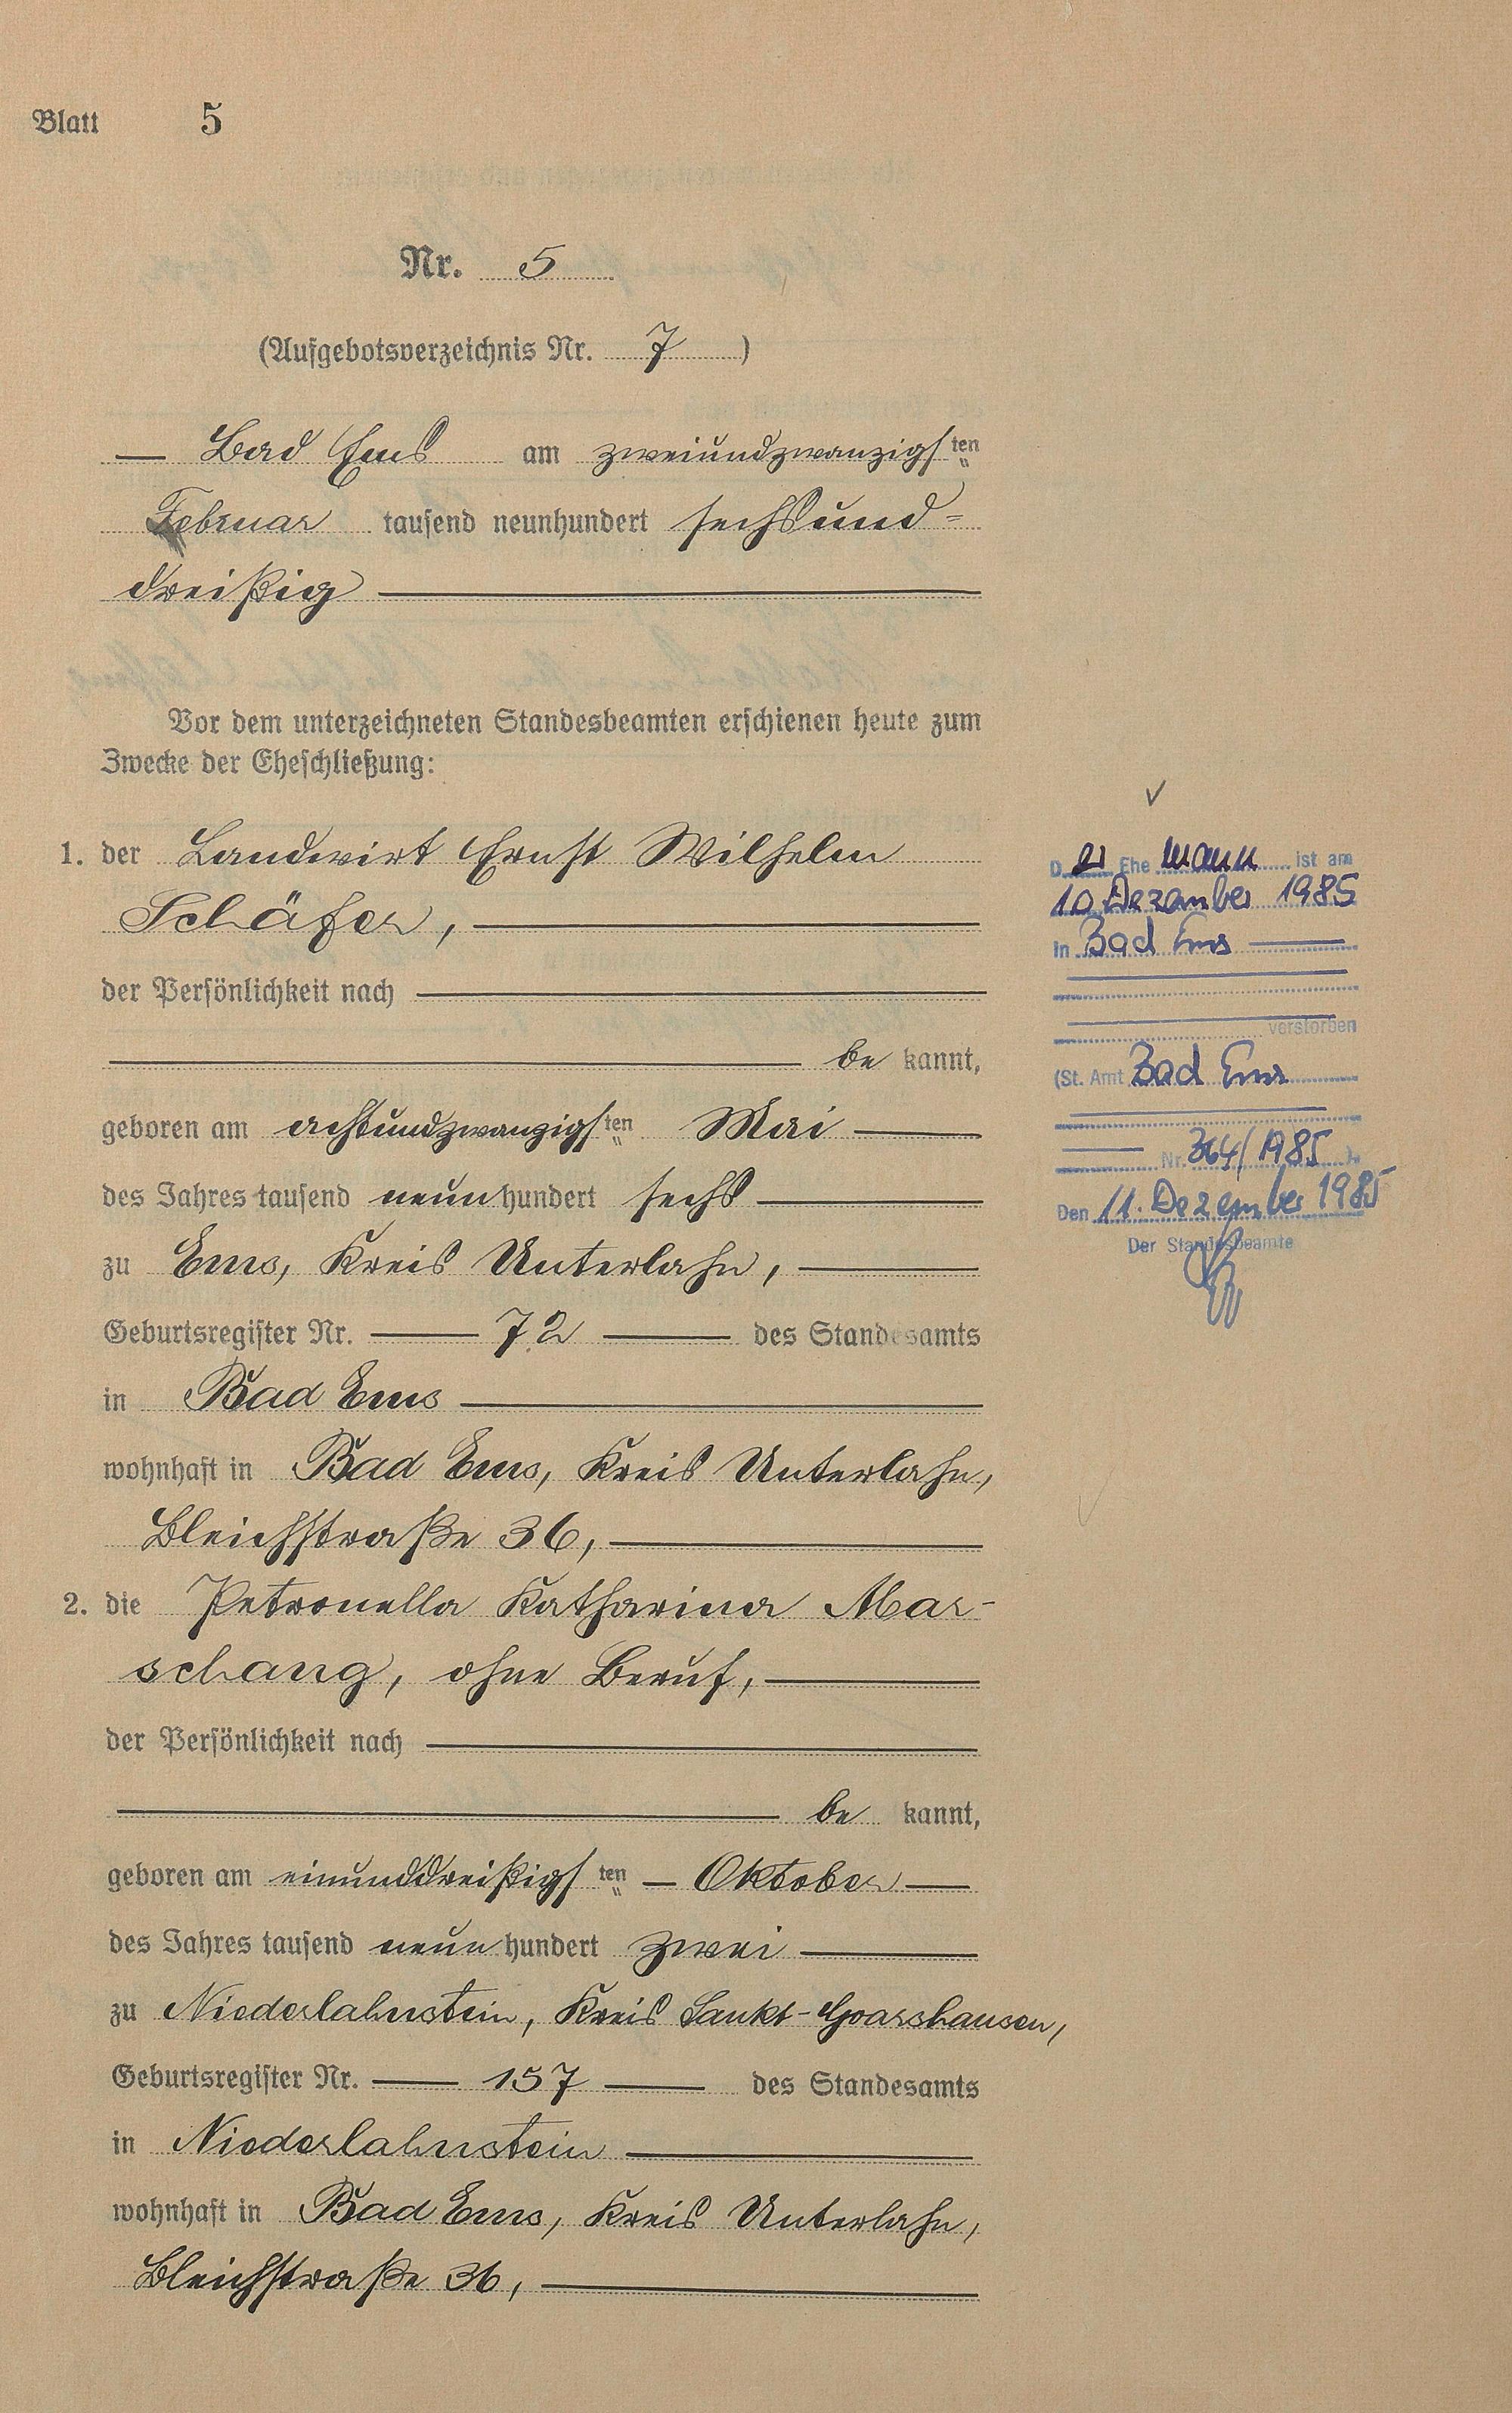 Blatt 5
Nr. 5
(Aufgebotsverzeichnis Nr. 7)
— Bad Ems am zweiundzwanzigsten
Februar tausend neunhundert sechsund=
dreißig —
Vor dem unterzeichneten Standesbeamten erschienen heute zum
Zwecke der Eheschließung:
1. der Landwirt Ernst Wilhelm
Schäfer, —
der Persönlichkeit nach —
— be kannt,
geboren am achtundzwanzigsten Mai —
des Jahres tausend neunhundert sechs —
zu Ems, Kreis Unterlahn, —
Geburtsregister Nr. — 72 — des Standesamts
in Bad Ems —
wohnhaft in Bad Ems, Kreis Unterlahn,
Bleichstraße 36, —
2. die Petronella Katharina Mar-
schang, ohne Beruf, —
der Persönlichkeit nach —
— be kannt,
geboren am einunddreißigsten — Oktober —
des Jahres tausend neunhundert zwei —
zu Niederlahnstein, Kreis Sankt-Goarshausen,
Geburtsregister Nr. — 157 — des Standesamts
in Niederlahnstein —
wohnhaft in Bad Ems, Kreis Unterlahn,
Bleichstraße 36, —
D er Ehe mann ist am
10. Dezember 1985
in Bad Ems —
verstorben
(St. Amt Bad Ems
— Nr. 364/1985 ).
Den 11. Dezember 1985
Der Standesbeamte